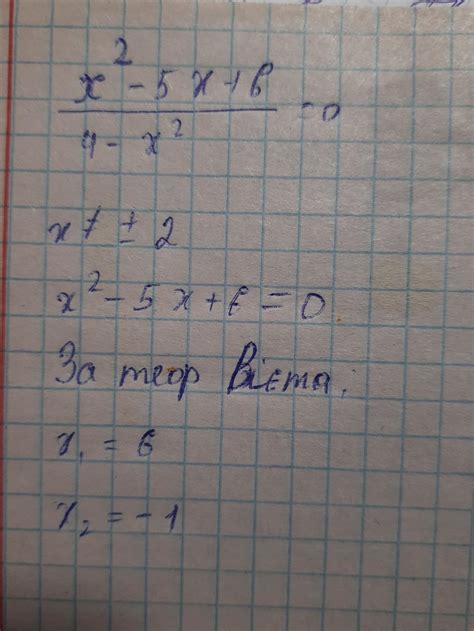 x² - 5x + 6
4 - x² = 0
x ≠ ± 2
x² - 5x + 6 = 0
За теор Вієта.
x₁ = 6
x₂ = -1